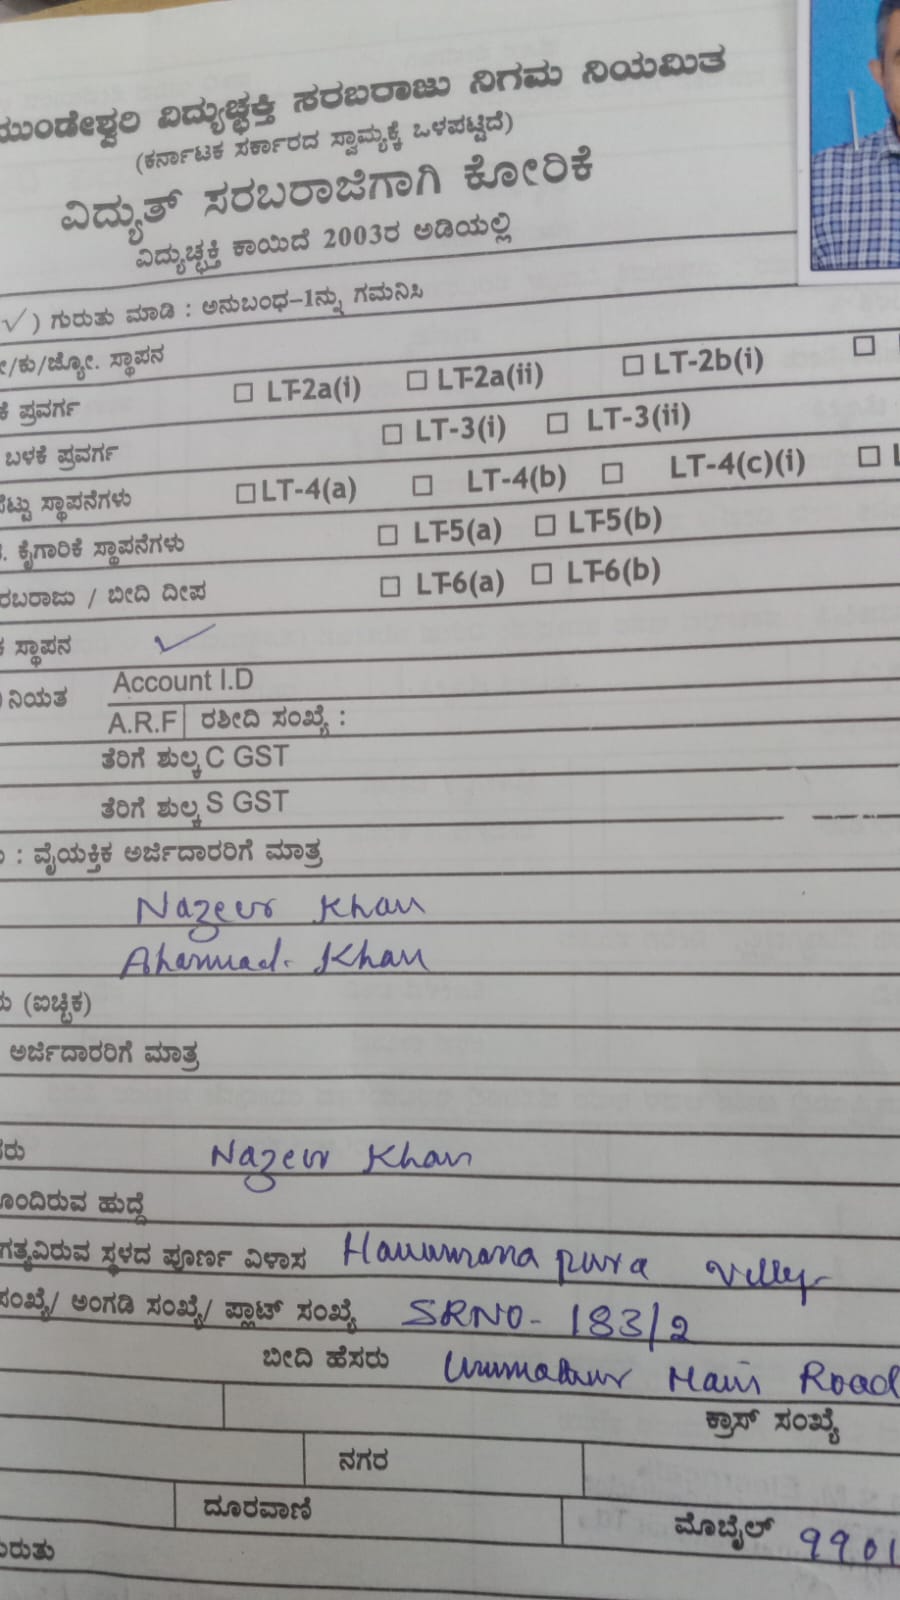 ಮುಂಡೇಶ್ವರಿ ವಿದ್ಯುಚ್ಛಕ್ತಿ ಸರಬರಾಜು ನಿಗಮ ನಿಯಮಿತ
(ಕರ್ನಾಟಕ ಸರ್ಕಾರದ ಸ್ವಾಮ್ಯಕ್ಕೆ ಒಳಪಟ್ಟಿದೆ)
ವಿದ್ಯುತ್ ಸರಬರಾಜಿಗಾಗಿ ಕೋರಿಕೆ
ವಿದ್ಯುಚ್ಛಕ್ತಿ ಕಾಯಿದೆ 2003ರ ಅಡಿಯಲ್ಲಿ
✓) ಗುರುತು ಮಾಡಿ : ಅನುಬಂಧ–1ನ್ನು ಗಮನಿಸಿ
/ಕು/ಜ್ಯೋ. ಸ್ಥಾಪನ
ಕೆ ಪ್ರವರ್ಗ ☐ LT-2a(i) ☐ LT-2a(ii) ☐ LT-2b(i) ☐
ಬಳಕೆ ಪ್ರವರ್ಗ ☐ LT-3(i) ☐ LT-3(ii)
ಸೆಟ್ಟು ಸ್ಥಾಪನೆಗಳು ☐ LT-4(a) ☐ LT-4(b) ☐ LT-4(c)(i) ☐
. ಕೈಗಾರಿಕೆ ಸ್ಥಾಪನೆಗಳು ☐ LT-5(a) ☐ LT-5(b)
ರಬರಾಜು / ಬೀದಿ ದೀಪ ☐ LT-6(a) ☐ LT-6(b)
ಕ ಸ್ಥಾಪನ ✓
ನಿಯತ Account I.D
A.R.F ರಶೀದಿ ಸಂಖ್ಯೆ :
ತೆರಿಗೆ ಶುಲ್ಕ C GST
ತೆರಿಗೆ ಶುಲ್ಕ S GST
: ವೈಯಕ್ತಿಕ ಅರ್ಜಿದಾರರಿಗೆ ಮಾತ್ರ
Nazeer Khan
Ahammad. Khan
ರು (ಐಚ್ಛಿಕ)
ಅರ್ಜಿದಾರರಿಗೆ ಮಾತ್ರ
ಸರು Nazeer Khan
ೊಂದಿರುವ ಹುದ್ದೆ
ಗತ್ಯವಿರುವ ಸ್ಥಳದ ಪೂರ್ಣ ವಿಳಾಸ Hanumanapura
ಸಂಖ್ಯೆ/ ಅಂಗಡಿ ಸಂಖ್ಯೆ/ ಪ್ಲಾಟ್ ಸಂಖ್ಯೆ SRNO- 183/2
ಬೀದಿ ಹೆಸರು Ummathur Main Road
ಕ್ರಾಸ್ ಸಂಖ್ಯೆ
ನಗರ
ದೂರವಾಣಿ ಮೊಬೈಲ್ 9901
ುರುತು